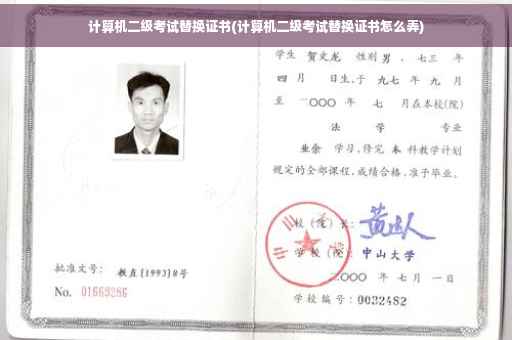 计算机二级考试替换证书(计算机二级考试替换证书怎么弄)
学生 贺文龙 性别 男 、七三 年
四 月 日生,于 九七 年 九 月
至 二〇〇〇 年 七 月在本校(院)
法 学 专业
业余 学习,修完 本 科教学计划
规定的全部课程,成绩合格,准予毕业。
校(院)长:
学校(院): 中山大学
二〇〇〇 年 七 月 一 日
学校编号:0032482
批准文号: 教直[1993]8号
No. 01669286